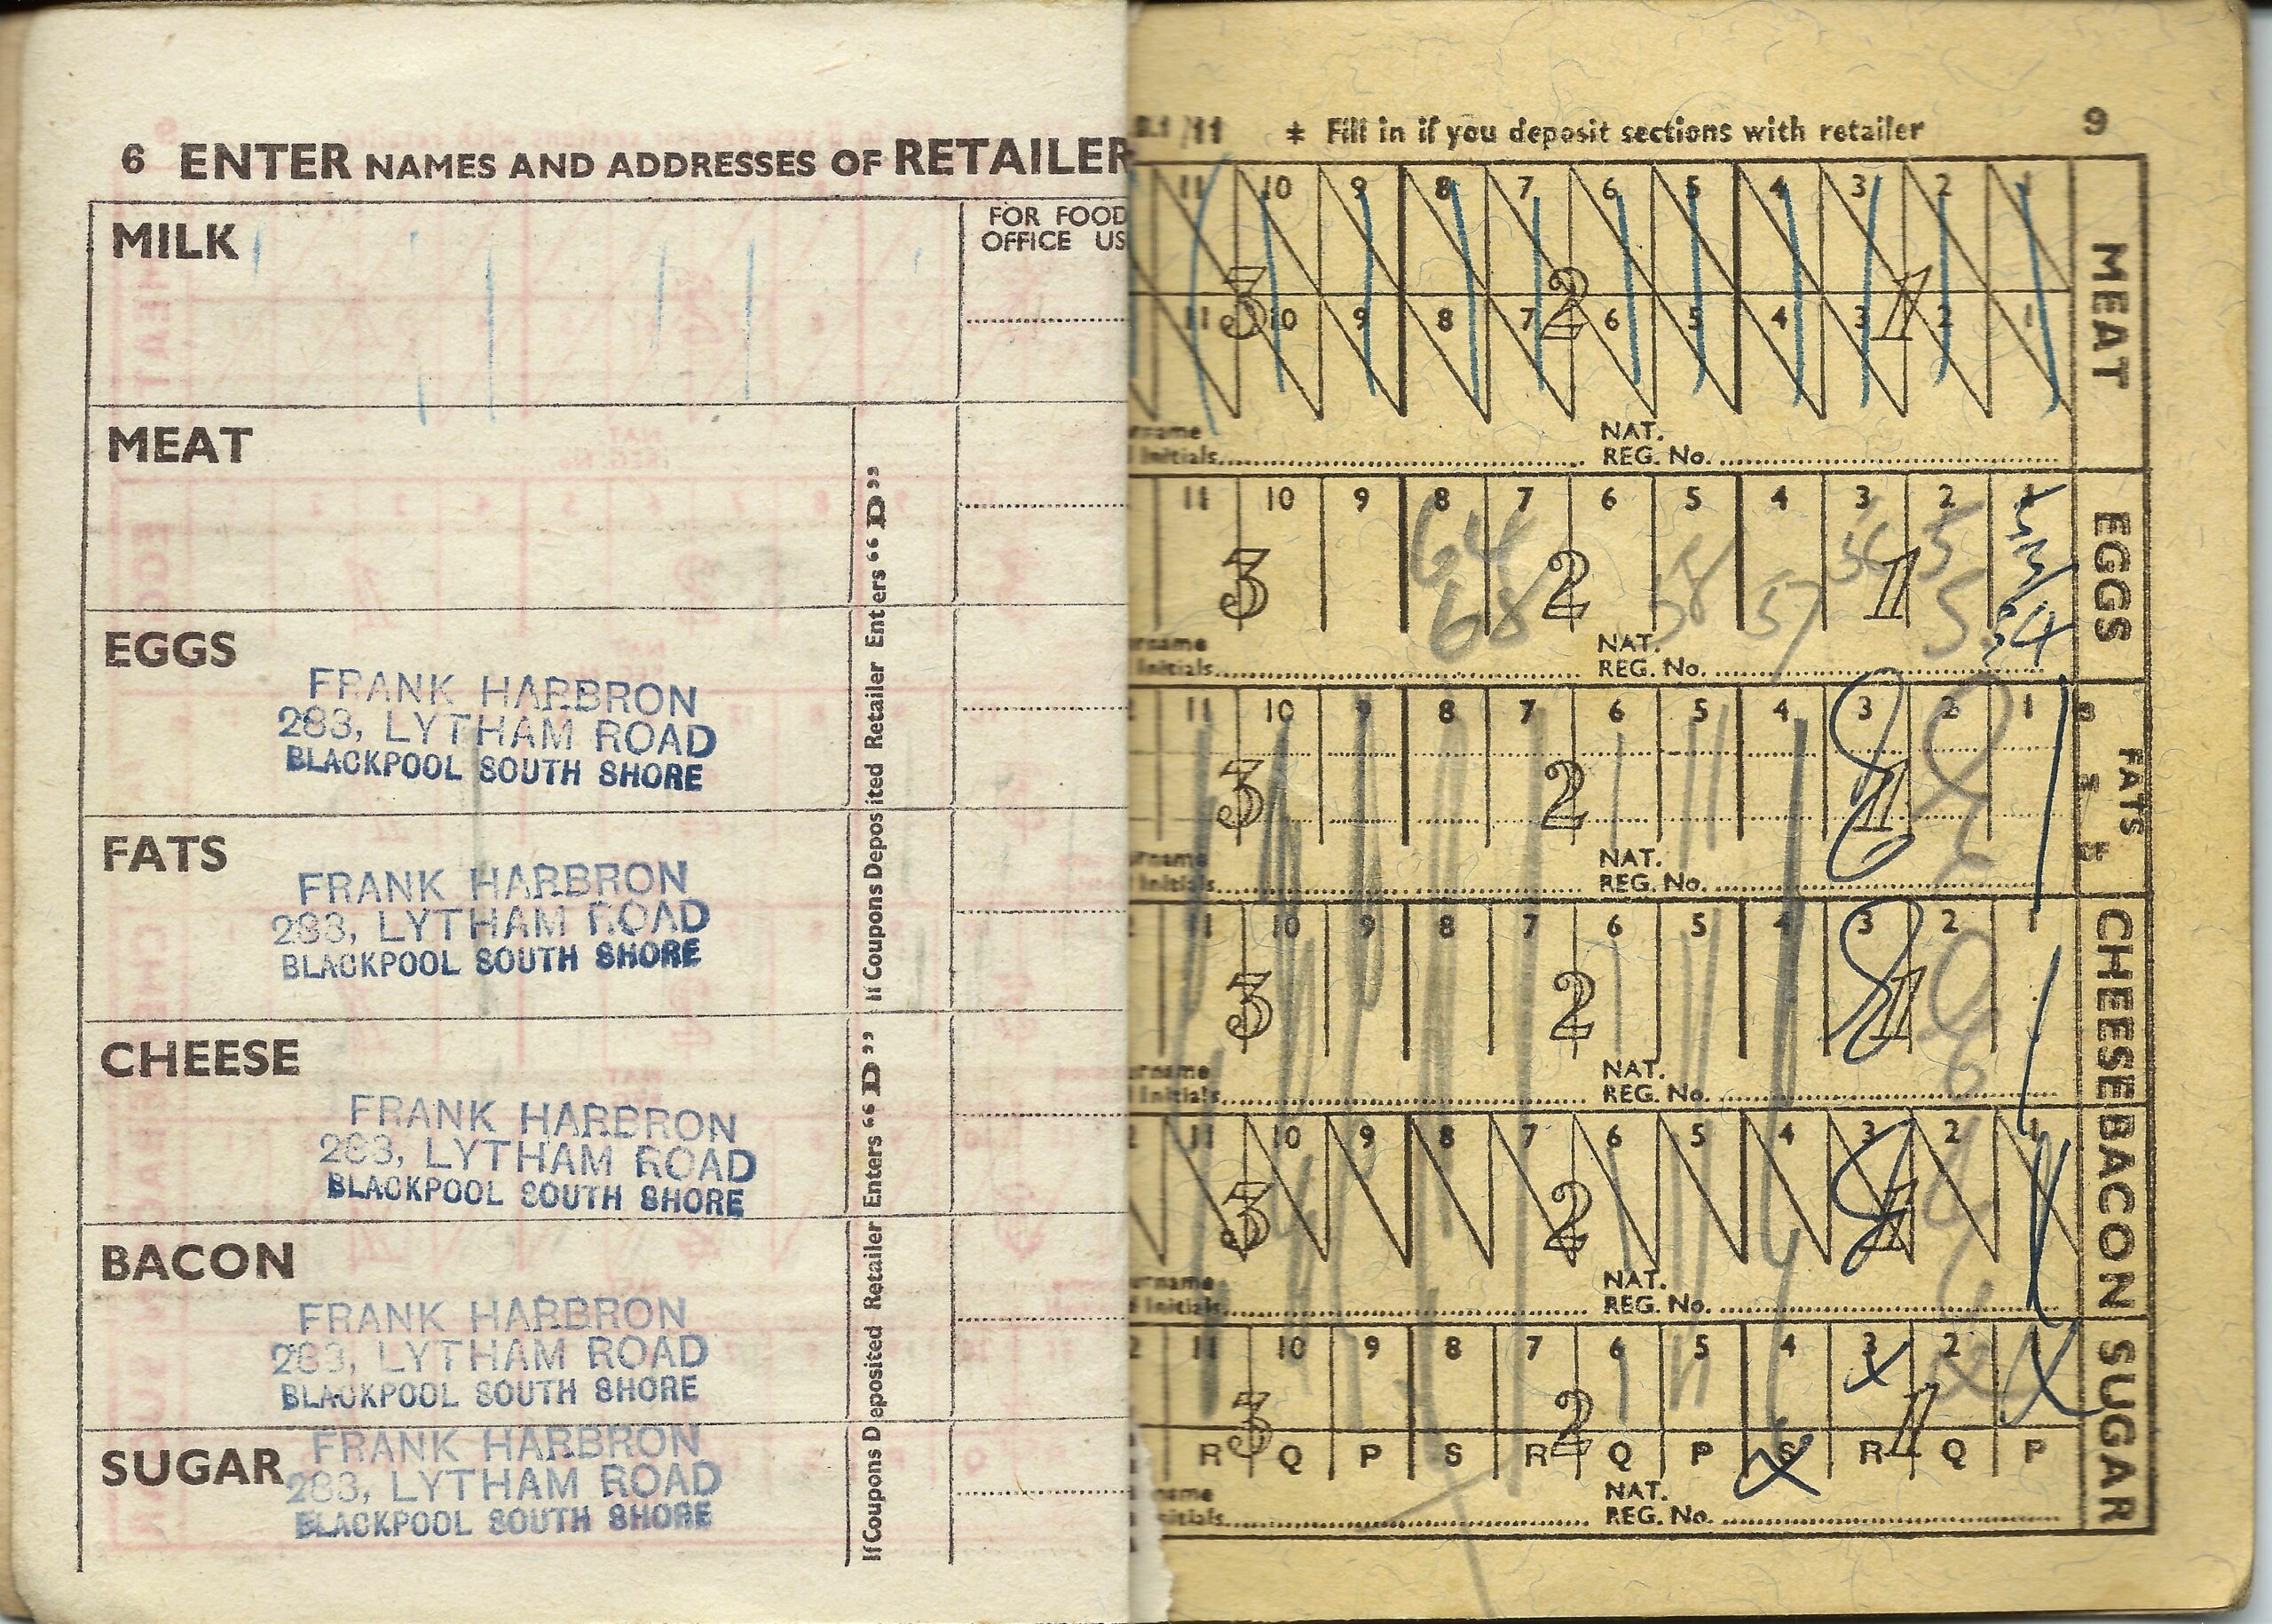 6 ENTER NAMES AND ADDRESSES OF RETAILER
MILK
FOR FOOD
OFFICE US
MEAT
EGGS
FRANK HARBRON
283, LYTHAM ROAD
BLACKPOOL SOUTH SHORE
FATS
FRANK HARBRON
283, LYTHAM ROAD
BLACKPOOL SOUTH SHORE
CHEESE
FRANK HARBRON
283, LYTHAM ROAD
BLACKPOOL SOUTH SHORE
BACON
FRANK HARBRON
283, LYTHAM ROAD
BLACKPOOL SOUTH SHORE
SUGAR
FRANK HARBRON
283, LYTHAM ROAD
BLACKPOOL SOUTH SHORE
If Coupons Deposited Retailer Enters “D”
If Coupons Deposited Retailer Enters “D”
* Fill in if you deposit sections with retailer
9
11 10 9 8 7 6 5 4 3 2 1
3 2 1
11 10 9 8 7 6 5 4 3 2 1
MEAT
NAT.
Initials REG. No.
11 10 9 8 7 6 5 4 3 2 1
64 58 57 56 5
68 5 34
3 2 1
EGGS
NAT.
Initials REG. No.
11 10 9 8 7 6 5 4 3 2 1
3 2 1
FATS
NAT.
Initials REG. No.
11 10 9 8 7 6 5 4 3 2 1
3 2 1
CHEESE
NAT.
Initials REG. No.
11 10 9 8 7 6 5 4 3 2 1
3 2 1
BACON
NAT.
Initials REG. No.
11 10 9 8 7 6 5 4 3 2 1
3 2 1
R Q P S R Q P S R Q P
SUGAR
NAT.
REG. No.